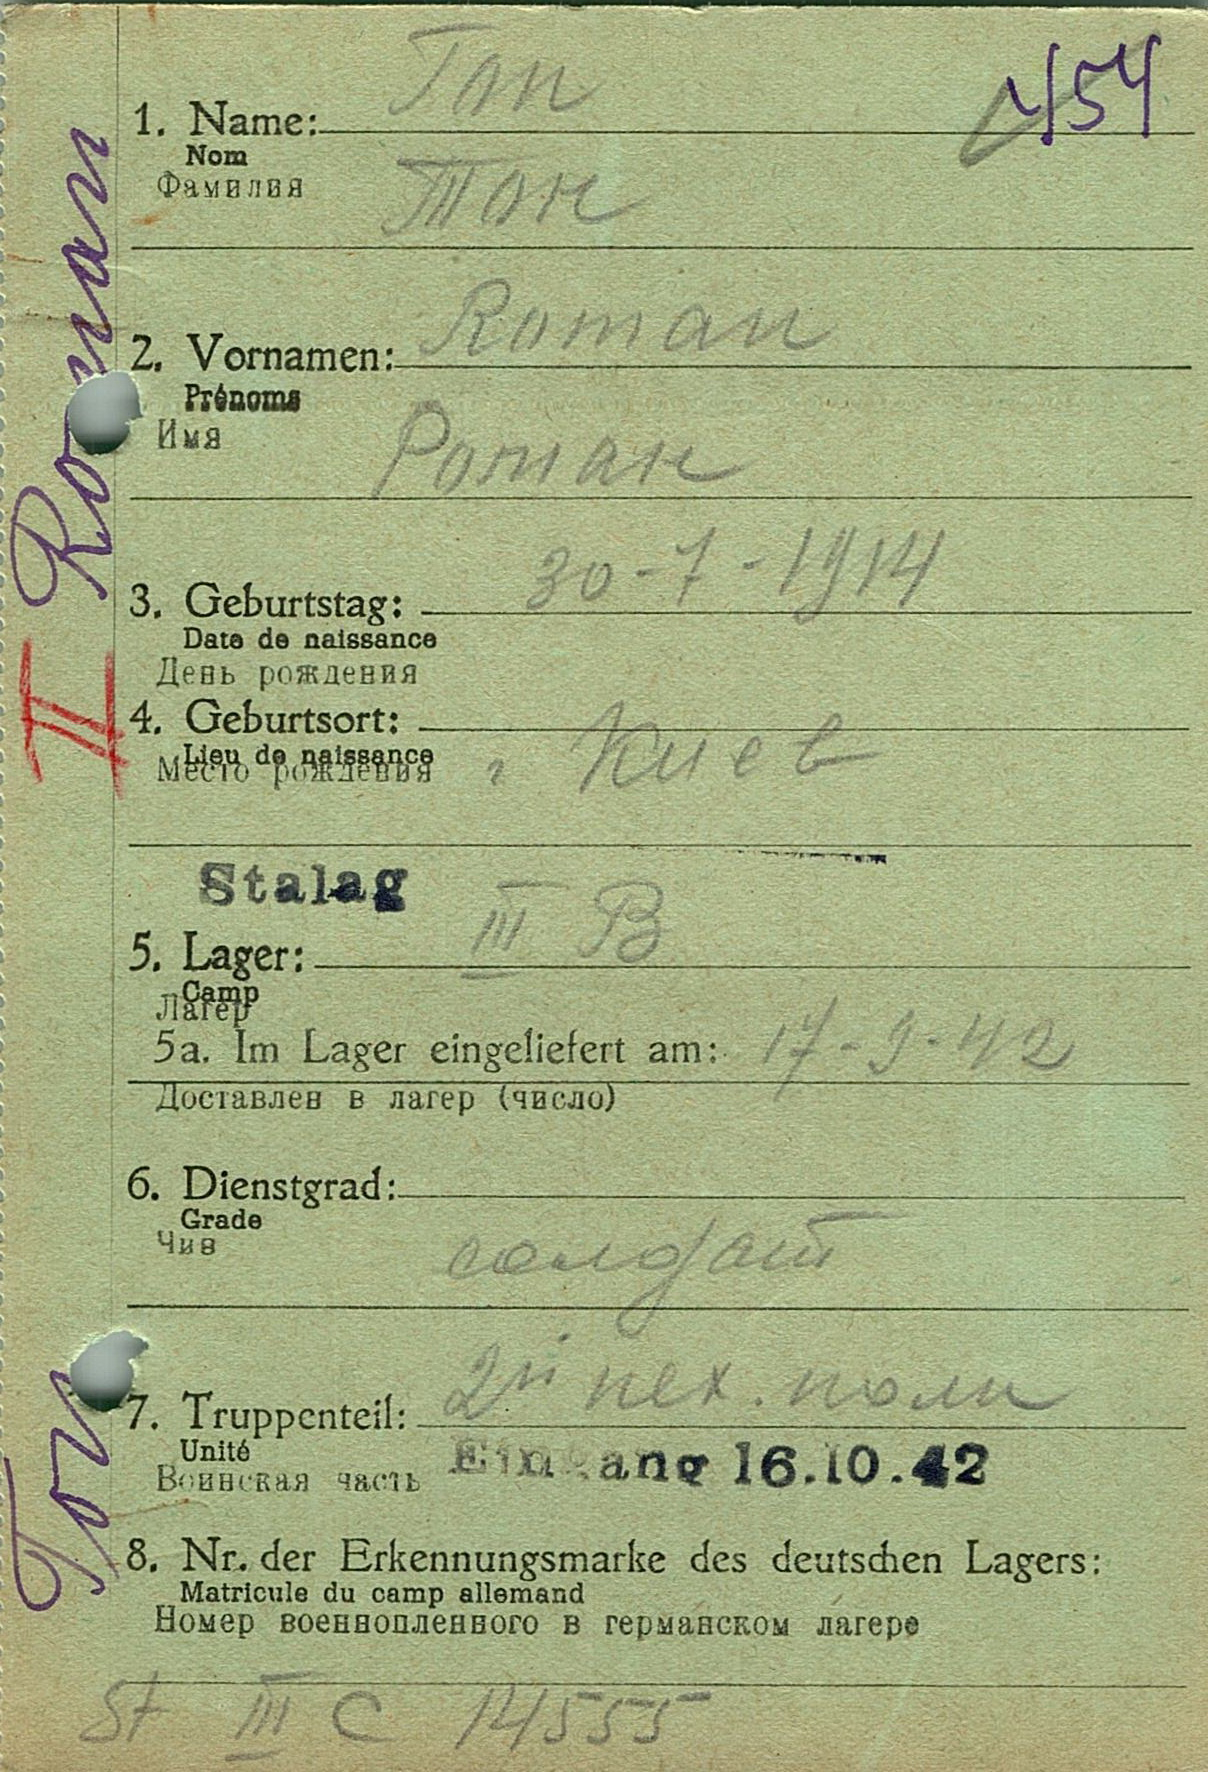 454
1. Name: Ton
Nom
Фамилия Тон
2. Vornamen: Roman
Prénoms
Имя Роман
3. Geburtstag: 30-7-1914
Date de naissance
День рождения
4. Geburtsort:
Lieu de naissance
Место рождения г Киев
Stalag III B
5. Lager:
Camp
Лагер
5a. Im Lager eingeliefert am: 17-9-42
Доставлен в лагер (число)
6. Dienstgrad:
Grade
Чин
солдат
7. Truppenteil: пех. полк
Unité
Воинская часть Eingang 16.10.42
8. Nr. der Erkennungsmarke des deutschen Lagers:
Matricule du camp allemand
Номер военнопленного в германском лагере
St III C 14555
Ton II Roman